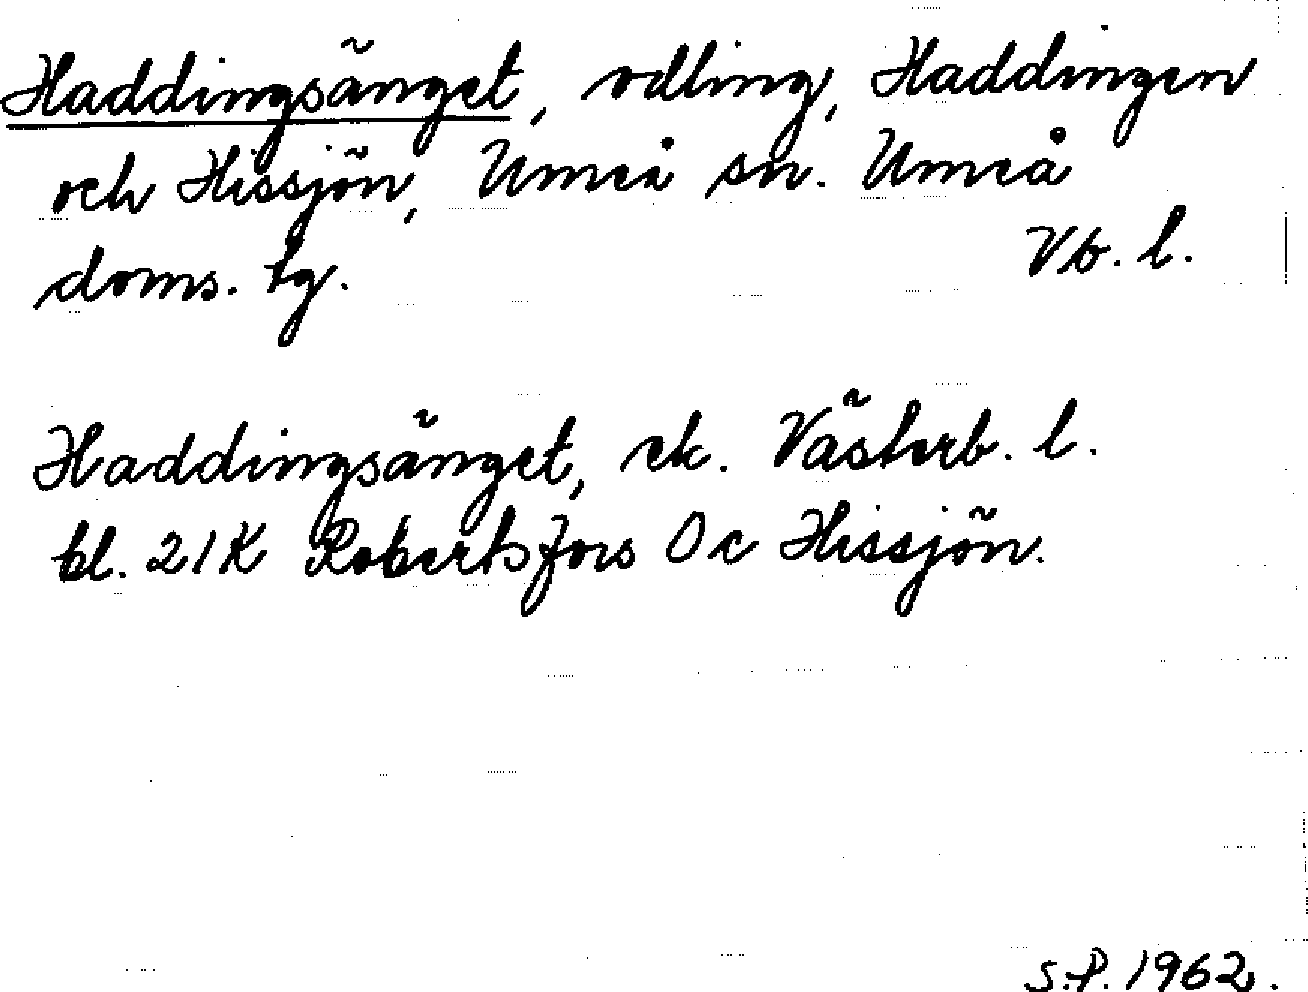 Haddingsänget, odling, Haddingen
och Hissjön, Umeå sn. Umeå
doms. lg. Vb. l.
Haddingsänget, ek. Västerb. l.
bl. 21K Robertsfors 0c Hissjön.
S.P. 1962.